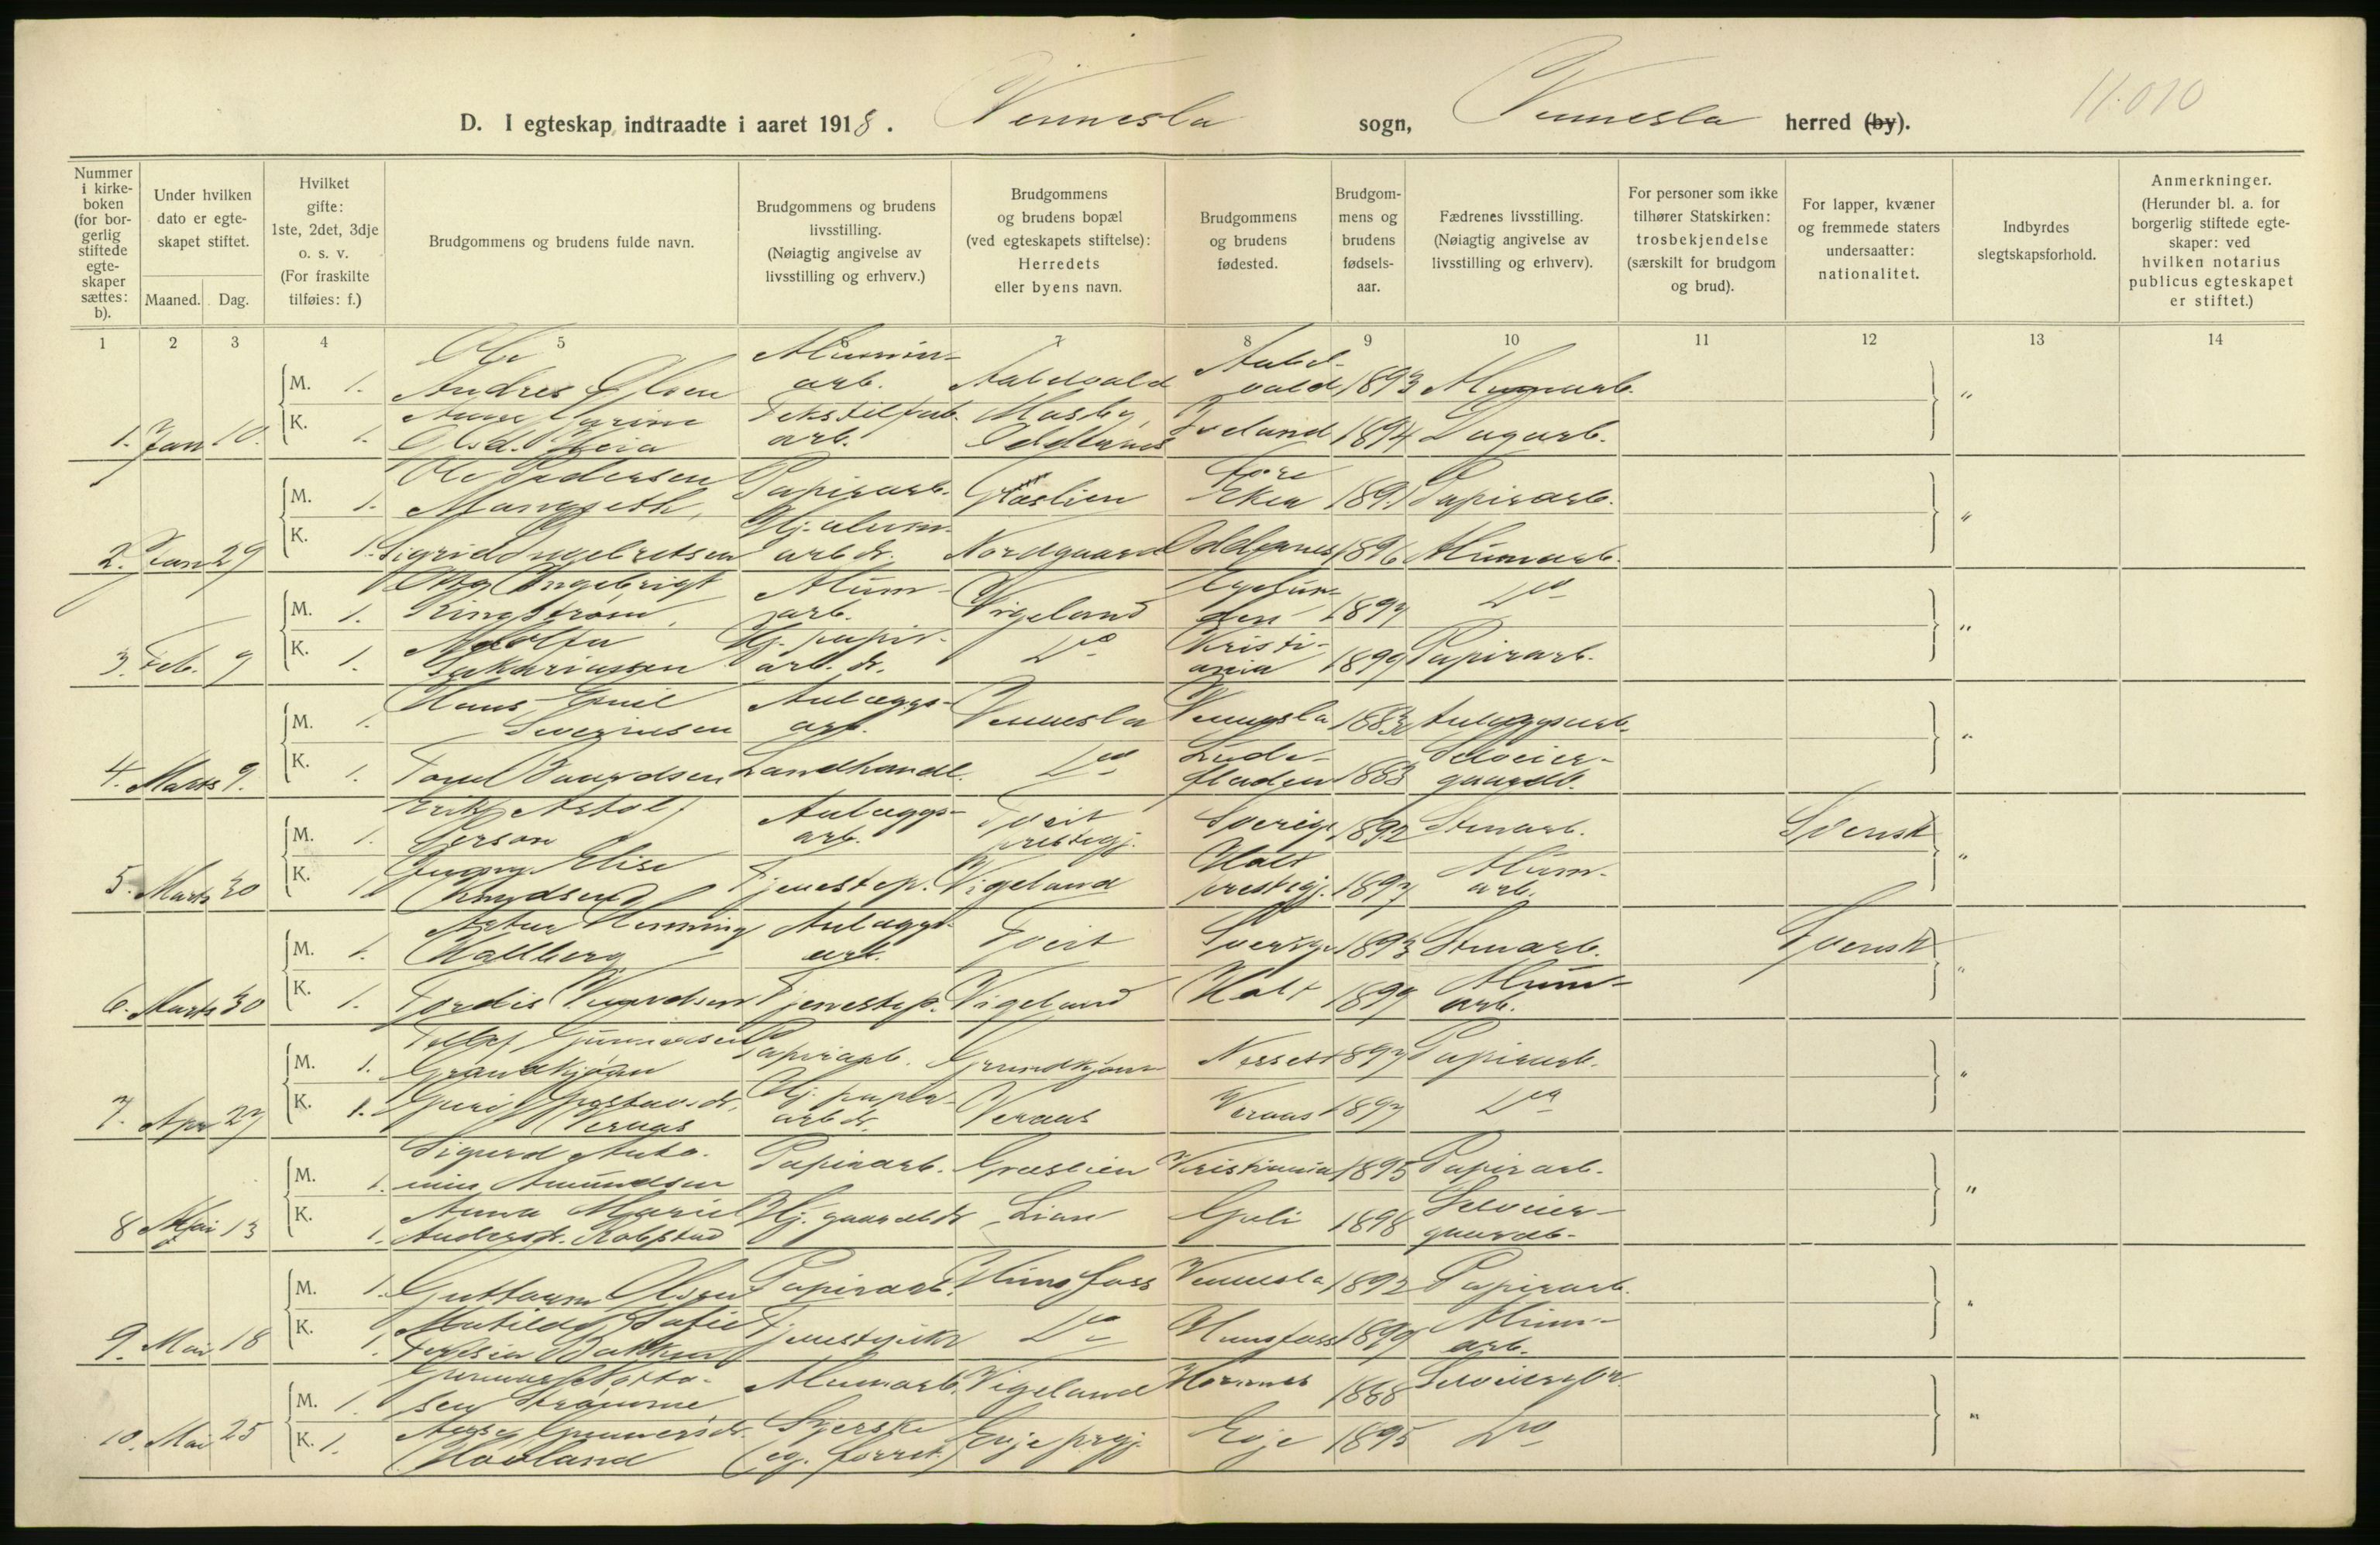 11.010
D. I egteskap indtraadte i aaret 1918. Vennesla sogn, Vennesla herred (by).
Nummer i kirkeboken (for borgerlig stiftede egteskaper sættes: b).
Under hvilken dato er egteskapet stiftet.
Maaned. Dag.
Hvilket gifte: 1ste, 2det, 3dje o. s. v. (For fraskilte tilføies: f.)
Brudgommens og brudens fulde navn.
Brudgommens og brudens livsstilling. (Nøiagtig angivelse av livsstilling og erhverv.)
Brudgommens og brudens bopæl (ved egteskapets stiftelse): Herredets eller byens navn.
Brudgommens og brudens fødested.
Brudgommens og brudens fødselsaar.
Fædrenes livsstilling. (Nøiagtig angivelse av livsstilling og erhverv).
For personer som ikke tilhører Statskirken: trosbekjendelse (særskilt for brudgom og brud).
For lapper, kvæner og fremmede staters undersaatter: nationalitet.
Indbyrdes slegtskapsforhold.
Anmerkninger. (Herunder bl. a. for borgerlig stiftede egteskaper: ved hvilken notarius publicus egteskapet er stiftet.)
1 2 3 4 5 6 7 8 9 10 11 12 13 14
M. 1. Ole Andres Olsen Alumin-arb. 1893 "
1. Jan 10. K. 1. Tekstilfab. arb. Mosby, Oddernes Iveland 1894 Dagarb.
M. 1. Ole Pedersen Papirarb. Graslien Eken 1891 Papirarb. "
2. Jan 29 K. 1. Sigrid Ingebretsen Hj. alum. arb. dr. Nordgaard Oddernes 1896 Alumarb.
M. 1. Ingebrigt Ringstrøm Alum-arb. Vigeland Egersunden 1897 Do "
3. Feb. 9 K. 1. Zakariassen Hj. papir-arb. dr. Do Kristiania 1899 Papirarb.
M. 1. Hans Emil Severinsen Anlægs-arb. Vennesla Vennesla 1883 Anlægsarb. "
4. Marts 9. K. 1. Landhandl. Do 1883 Selveier-gaardb.
M. 1. Person Anlægs-arb. Tveit prestegj. Sverige 1892 Stenarb. Svensk "
5. Marts 30 K. 1. Elise Knudsen Tjenestep. Vigeland Holt prestegj. 1897 Alum-arb.
M. 1. Artur Henning Hallberg Anlægs-arb. Tveit Sverige 1893 Stenarb. Svensk "
6. Marts 30 K. 1. Tordis Knudsen Tjenestep. Vigeland Holt 1899 Alum-arb.
M. 1. Gunnarsen Grundkjøn Papirarb. Grundkjøn 1897 Papirarb. "
7. Apr 27 K. 1. Guri Gustavsdr. Veraas Hj. papir-arb dr. Veraas Veraas 1897 Do
M. 1. Sigurd Anto-nius Amundsen Papirarb. Graslien Kristiania 1895 Papirarb. "
8 Mai 13 K. 1. Anna Marie Andersdr. Robstad Hj. gaardb dr Lian Greli 1898 Selveier-gaardb.
M. 1. Guttorm Olsen Papirarb. Hunsfoss Vennesla 1892 Papirarb. "
9. Mai 18 K. 1. Matilde Sofie Bakken Tjenestepike Do Hunsfoss 1899 Alum-arb.
M. 1. Gunnar Strømme Alumarb. Vigeland Hornnes 1888 "
10. Mai 25 K. 1. Gunnersdr. Hovland Syerske (eg. forret.) Evje prgj. Evje 1895 Do